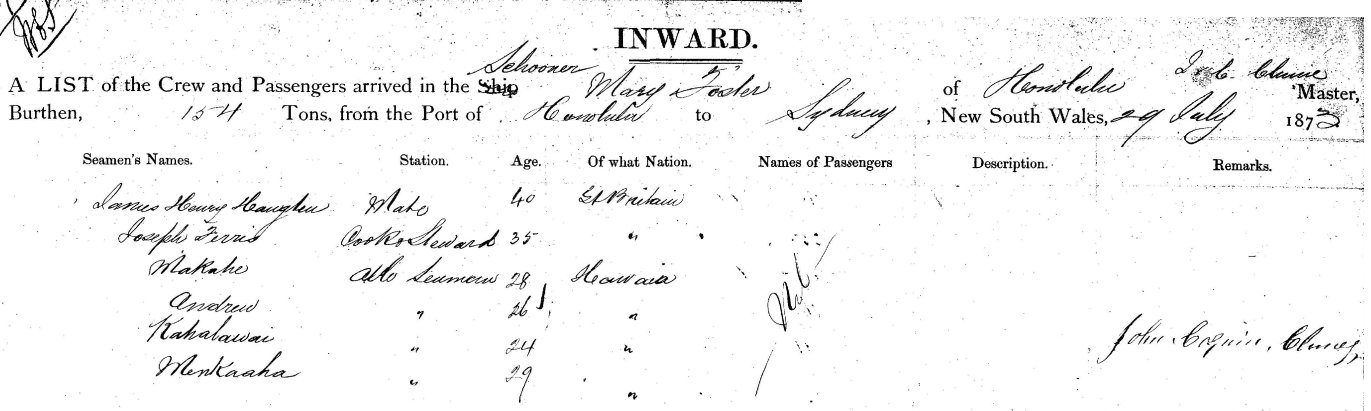 INWARD.
Schooner
A LIST of the Crew and Passengers arrived in the Ship Mary Foster of Honolulu Master,
Burthen, 154 Tons, from the Port of Honolulu to Sydney, New South Wales, 29 July 1873
Seamen's Names. Station. Age. Of what Nation. Names of Passengers Description. Remarks.
James Henry Haughten Mate 40 Gt Britain
Joseph Ferris Cook & Steward 35 "
Makahe Able Seamen 28 Hawaia
Andrew " 26 "
Kahalawai " 24 "
Menkaaha " 29 "
Nil
John